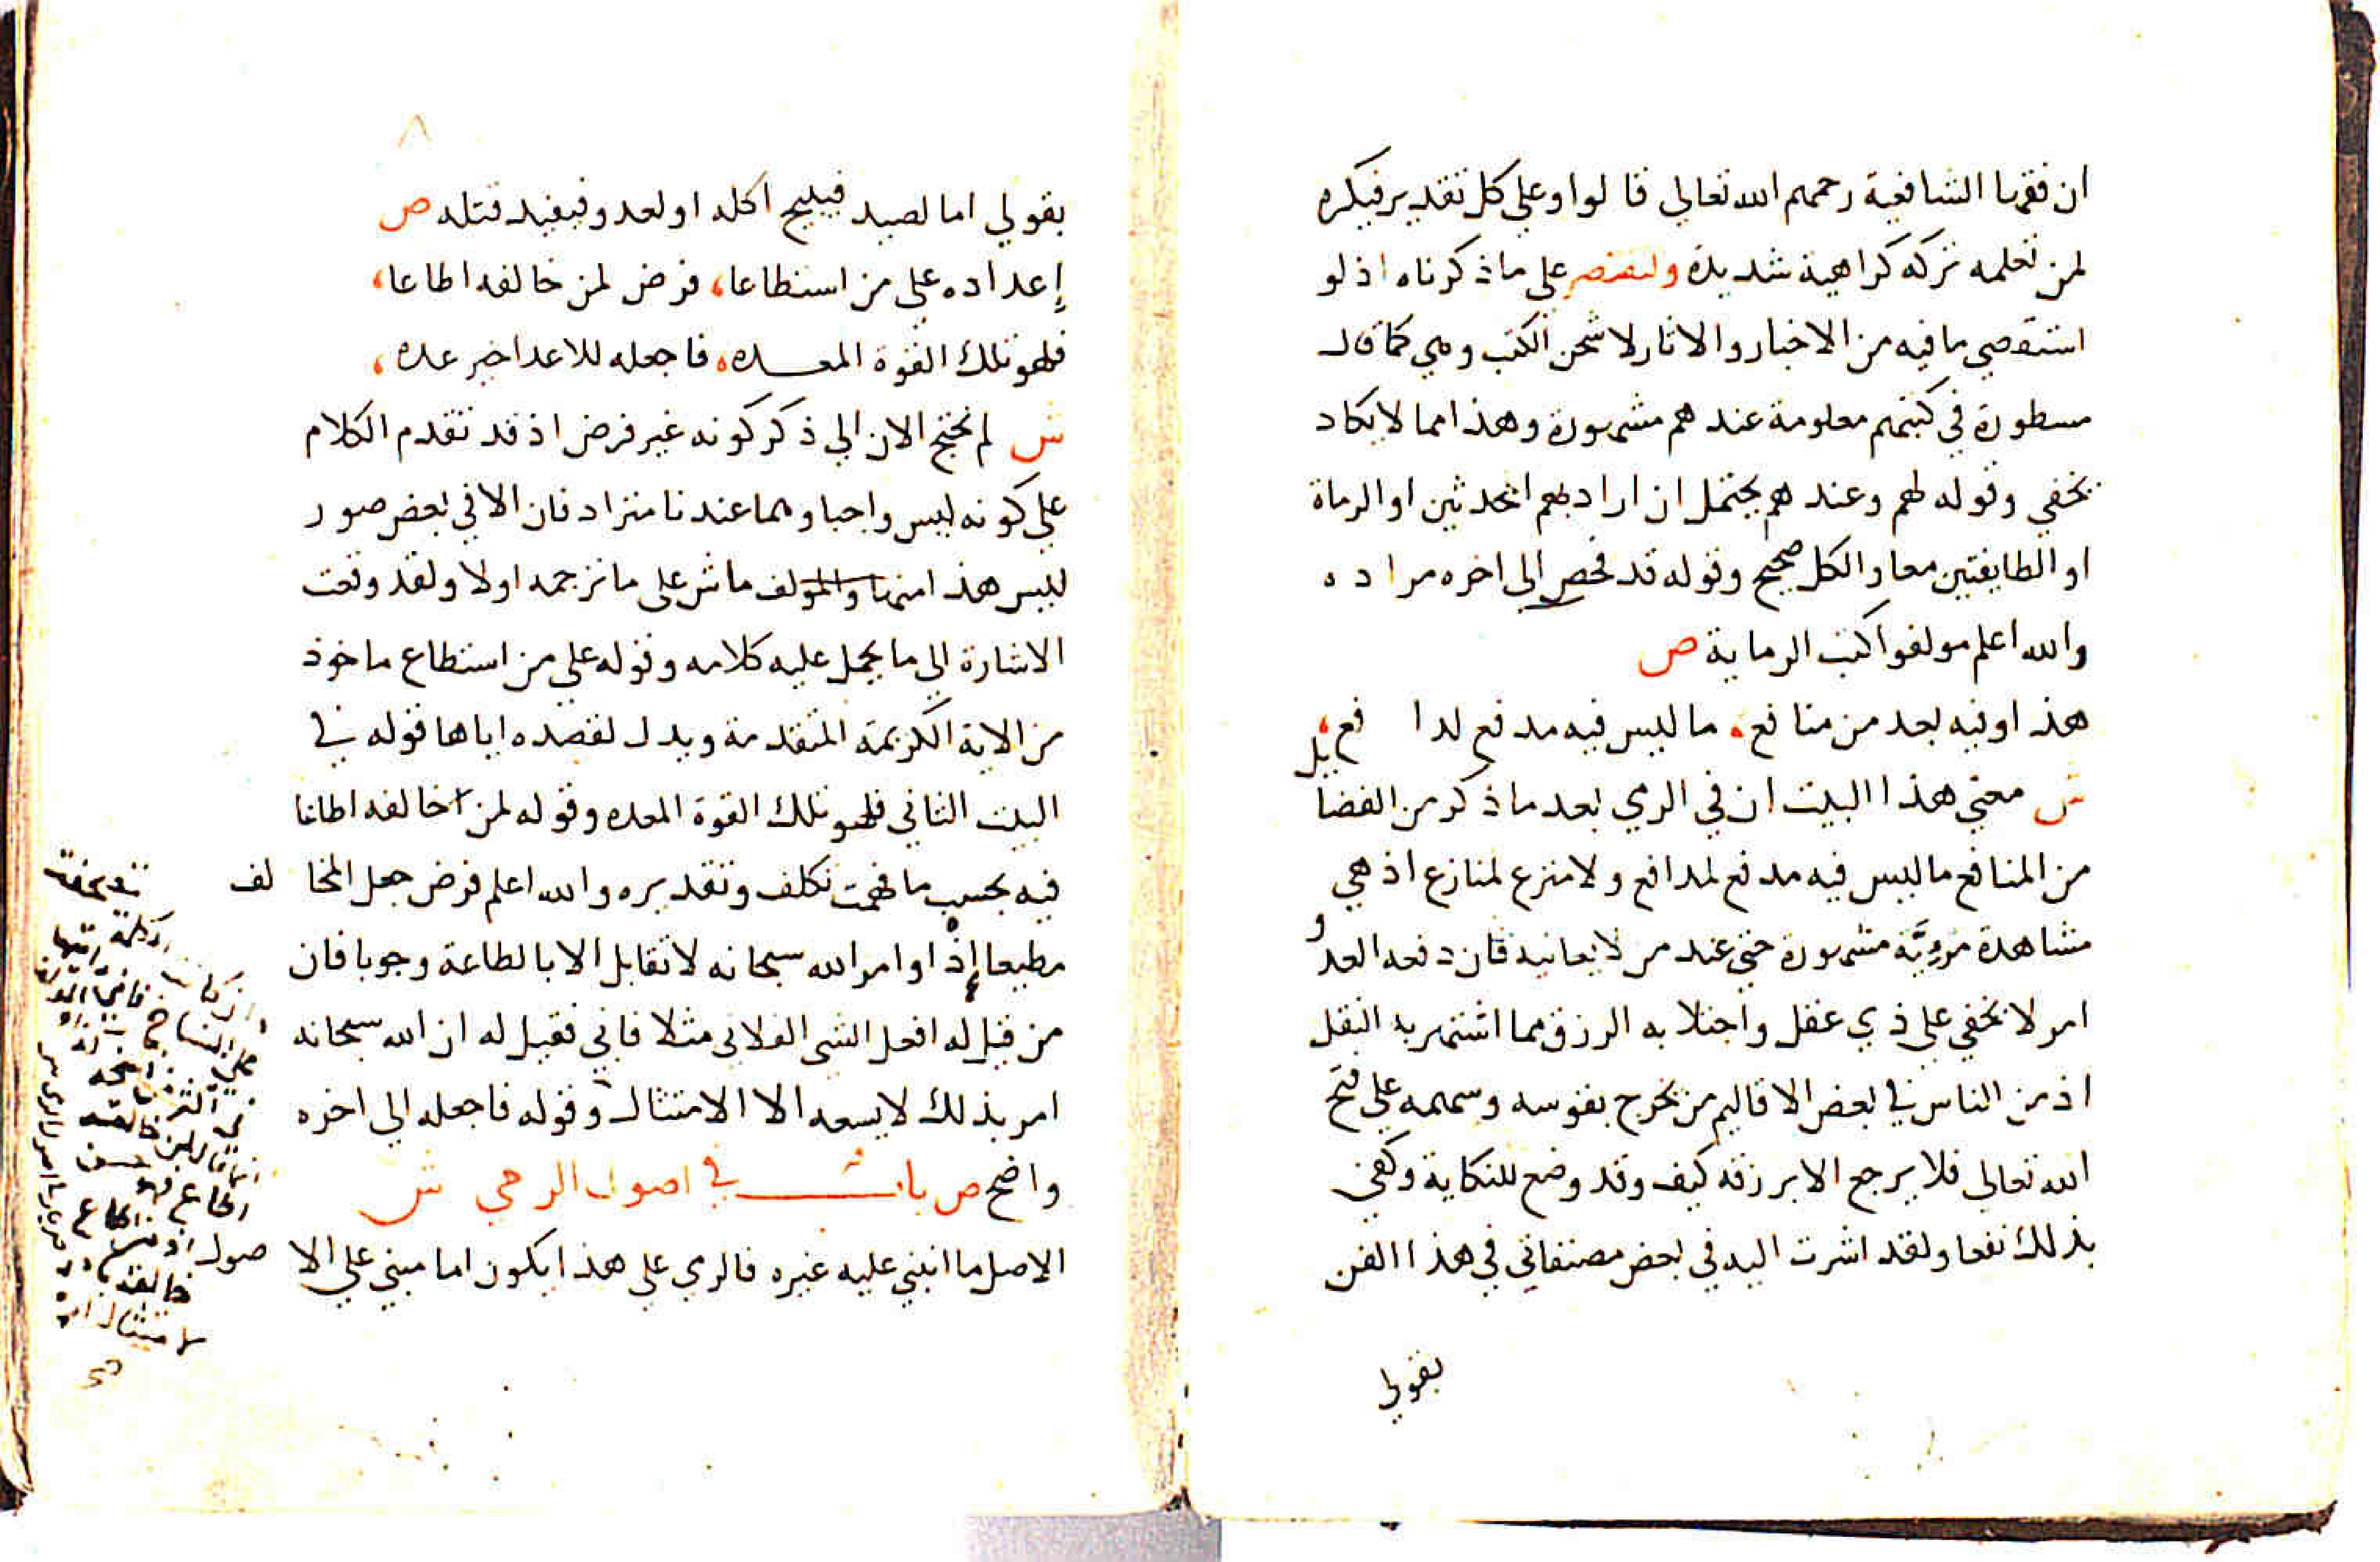 ان فقها الشافعية رحمهم الله تعالي قالوا وعلي كل تقدير فيكره
لمن تعلمه تركه كراهية شديدة ولنقتصر علي ما ذكرناه اذ لو
استقصي ما فيه من الاخبار والاثار لاشحن الكتب وهي كما قال
مسطورة في كتبهم معلومة عندهم مشهورة وهذا مما لا يكاد
يخفي وقوله لهم وعندهم يحتمل ان اراد بهم المحدثين او الرماة
او الطايفتين معا والكل صحيح وقوله قد نحصر الي اخره مراده
والله اعلم مولفوا كتب الرماية ص
هذا وفيه بعد من منافع، ما ليس فيه مدفع لدافع،
ش معني هذا البيت ان في الرمي بعد ما ذكر من الفضايل
من المنافع ما ليس فيه مدفع لمدافع ولا منزع لمنازع اذ هي
مشاهدة مروية مشهورة حتي عند من لا يعانيه فان دفعه العدو
امر لا يخفي علي ذي عقل واجتلابه الرزق مما اشتهر به النقل
اذ من الناس في بعض الاقاليم من يخرج بقوسه وسهمه علي فتح
الله تعالي فلا يرجع الا برزقه كيف وقد وضع للنكاية وكفي
بذلك نفعا ولقد اشرت اليه في بعض مصنفاتي في هذا الفن
بقولي
٨
بقولي اما لصيد فيبيح اكله او لعدو فيفيد قتله ص
إعداده علي من استطاعا، فرض لمن خالفه اطاعا،
فهو تلك القوة المعده، فاجعله للاعدا خير عده،
ش لم نحتج الان الي ذكر كونه غير فرض اذ قد تقدم الكلام
علي كونه ليس واجبا وهما عندنا مترادفان الا في بعض صور
ليس هذا منها والمولف ماش علي ما ترجمه اولا ولقد وقعت
الاشارة الي ما يحمل عليه كلامه وقوله علي من استطاع ماخوذ
من الاية الكريمة المتقدمة ويدل لقصده اياها قوله في
البيت الثاني فهو تلك القوة المعده وقوله لمن خالفه اطاعا
فيه بحسب ما فهمت تكلف وتقديره والله اعلم فرض جعل المخالف
مطيعا إذ اوامر الله سبحانه لا تقابل الا بالطاعة وجوبا فان
من قيل له افعل الشي الفلاني مثلا فابي فقيل له ان الله سبحانه
امر بذلك لا يسعه الا الامتثال وقوله فاجعله الي اخره
واضح ص باب في اصول الرمي ش
الاصل ما انبني عليه غيره فالرمي علي هذا يكون اما مبني علي الاصول